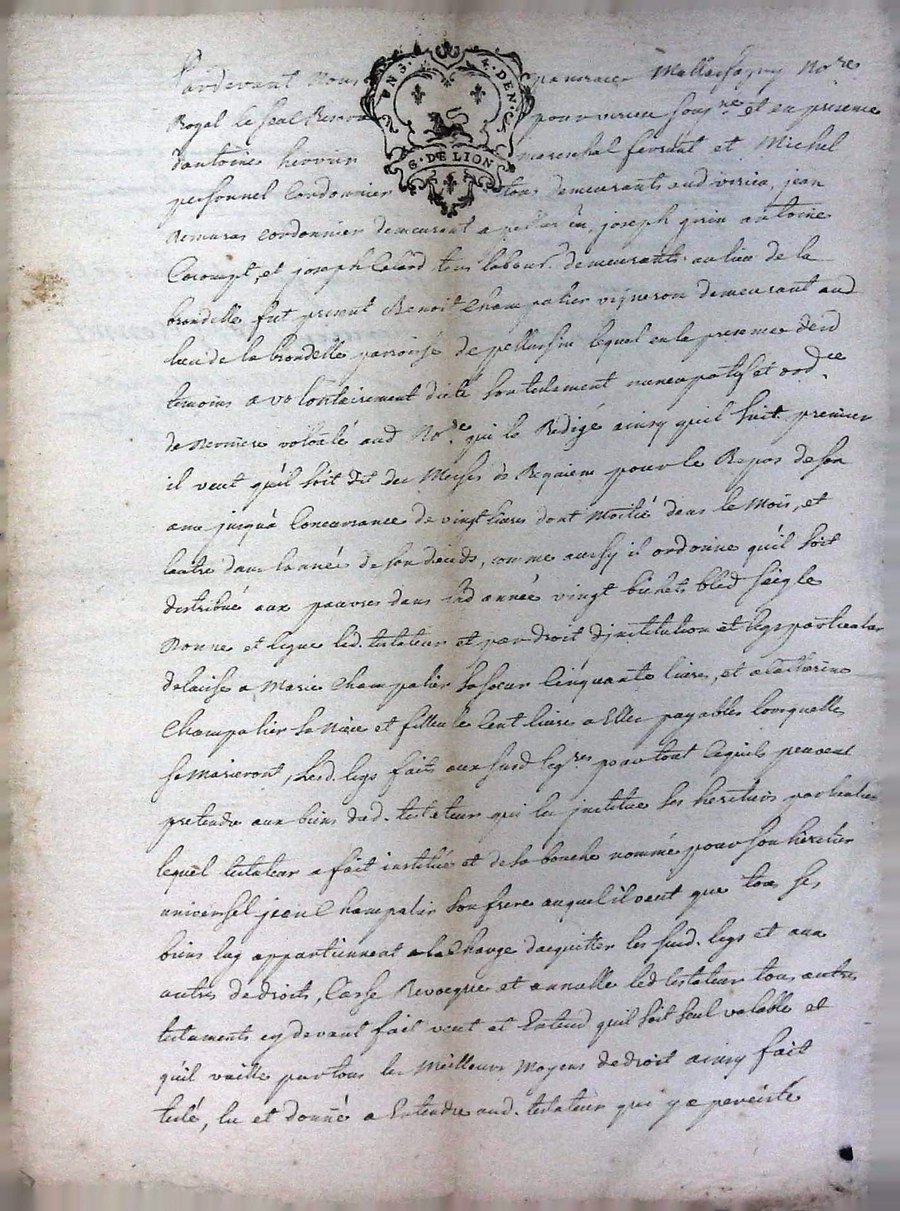 Pardevant Nous pancracier Mallassagny No.re
UN S. 4. DEN.
G. DE LION
Royal le seul Reservé pour virieu sous.né et en presence
d'antoine hervier mareschal ferrant et Michel
personnel Cordonnier tous demeurants aud virieu, jean
Remuras cordonnier demeurant a pellussin, joseph grin antoine
Corompt, et joseph Colard tous labour.s demeurants au lieu de la
brondelle fut present Benoit Champalier vigneron demeurant aud
lieu de la brondelle parroisse de pellussin lequel en la presence desd
temoins a volontairement dicté son testament nuncupatif et ord.ce
de derniere volonté aud No.re qui la Redigé ainsy quil suit. premier
il veut quil soit dit des Messes de Requiem pour le Repos de son
ame jusqu'a Concurrance de vingt livres dont Moitié dans le Mois, et
lautre dans lannée de son deceds, comme aussy il ordonne quil soit
distribué aux pauvres dans lad année vingt bichets bled seigle
Donne et legue led. testateur et par droit d'institution et legs particulier
delaisse a Marie Champalier sa soeur Cinquante livres, et a Catherine
Champalier sa Niece et filleule Cent livres a Elles payables lorsquelles
se Marieront, lesd. legs faits aux susd leg.res pour tout ce quils peuvent
pretendre aux biens dud. testateur qui les institue ses heritiers particuliers
lequel testateur a fait institué et de sa bouche nommé pour son heritier
universel jean Champalier son frere auquel il veut que tous ses
biens luy appartiennent a la Charge dacquitter les susd. legs et aux
autres de droits, Casse Revocque et annulle led testateur tous autres
testaments cy devant fait veut et Entend quil soit seul valable et
qu'il vaille par tous les Meilleurs Moyens de droit ainsy fait
testé, lu et donné a Entendre aud. testateur qui y a percisté